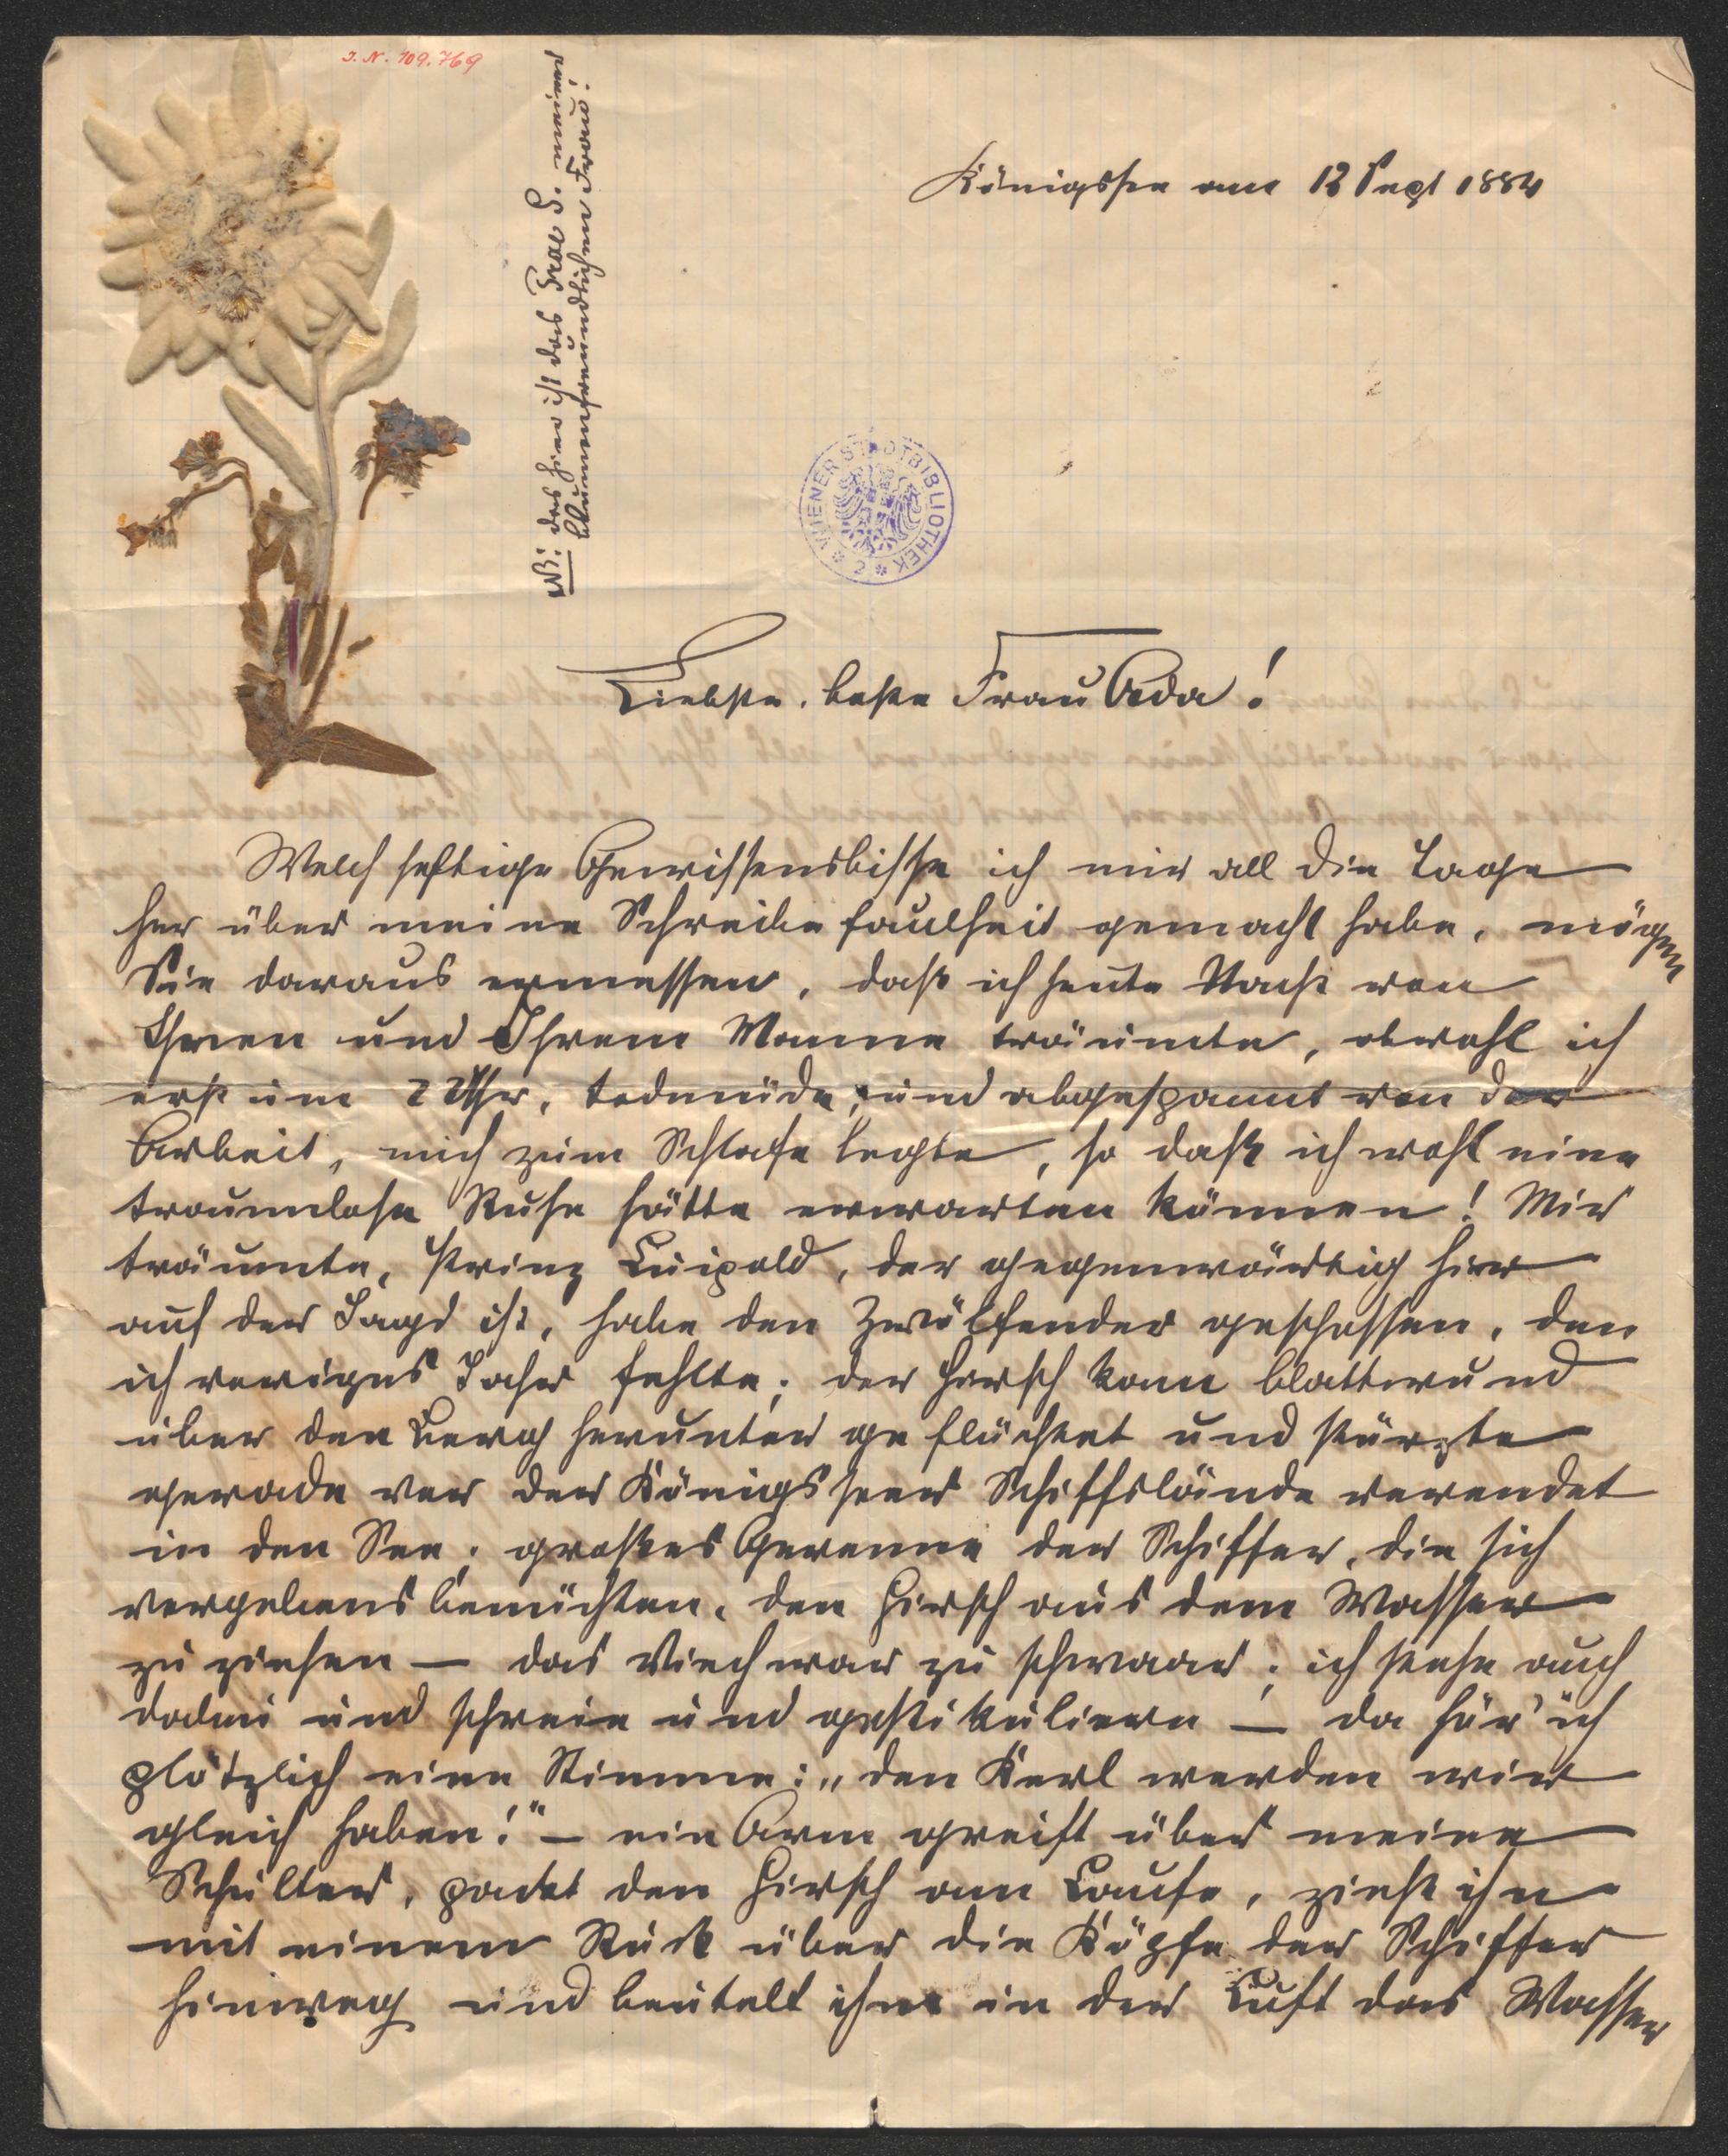 J. N. 109.769
NB: das hier ist das Grae S. meiner
blumenfreundlichen Frau!
Königssee am 12 Sept 1884
WIENER STADTBIBLIOTHEK
2
Liebste, beste Frau Ada!
Welch heftige Gewissensbisse ich mir all die Tage
her über meine Schreibefaulheit gemacht habe, mögen
Sie daraus ermessen, daß ich heute Nacht von
Ihnen und Ihrem Manne träumte, obwohl ich
erst um 2 Uhr, todmüde, und abgespannt von der
Arbeit, mich zum Schlafe legte, so daß ich wohl eine
traumlose Ruhe hätte erwarten können! Mir
träumte, Prinz Luipold, der gegenwärtig hier
auf der Jagd ist, habe den Zwölfender geschossen, den
ich voriges Jahr fehlte; der Hirsch kam blattwund
über den Berg herunter geflüchtet und stürzte
gerade vor der Königsseer Schiffslände verendet
in den See; großes Gerenne der Schiffer, die sich
vergebens bemühten, den Hirsch aus dem Wasser
zu ziehen — das Viech war zu schwaar; ich stehe auch
dabei und schreie und gestikuliere — da hör' ich
plötzlich eine Stimme: „den Kerl werden wir
gleich haben!" — ein Arm greift über meine
Schulter, packt den Hirsch am Laufe, zieht ihn
mit einem Ruck über die Köpfe der Schiffer
hinweg und beutelt ihm in der Luft das Wasser